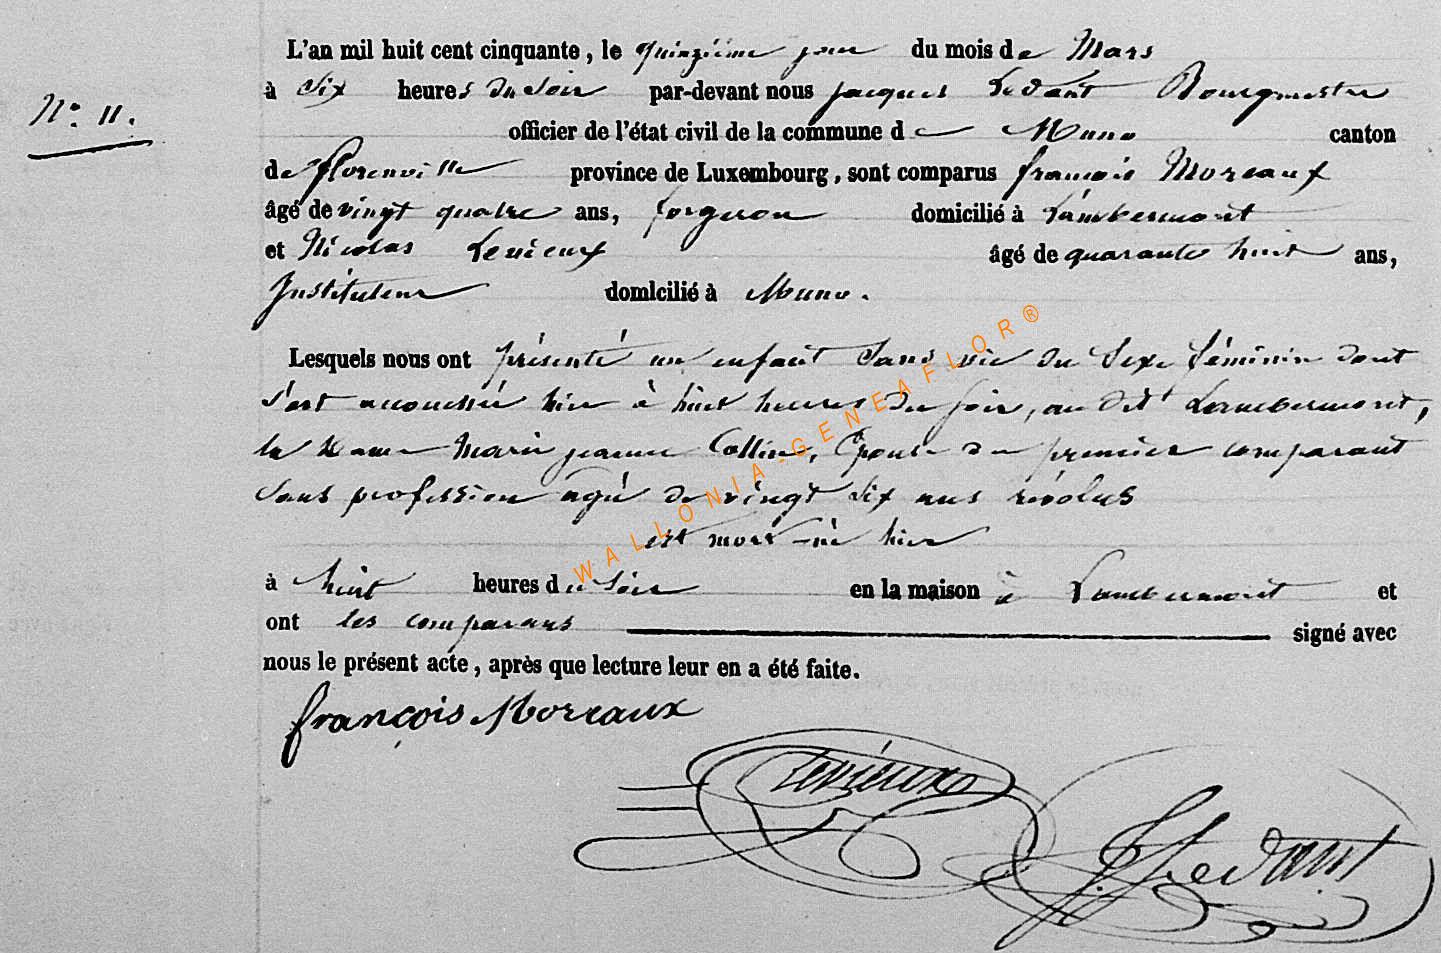 N° 11.
L'an mil huit cent cinquante, le quinzième jour du mois de Mars
à six heures du soir par-devant nous jacques Ledant Bourgmestre
officier de l'état civil de la commune de Muno canton
de florenville province de Luxembourg, sont comparus françois Moreaux
âgé de vingt quatre ans, forgeron domicilié à Lambermont
et Nicolas Levieux âgé de quarante huit ans,
Instituteur domicilié à Muno.
Lesquels nous ont présenté un enfant sans vie du sexe féminin dont
s'est accouchée hier à huit heures du soir, au dit Lambermont,
la Dame Marie jeanne Collin, Epouse du premier comparant
sans profession agée de vingt six ans révolus
est mort-né hier
à huit heures du soir en la maison à Lambermont et
ont les comparans signé avec
nous le présent acte, après que lecture leur en a été faite.
françois Moreaux
Levieux
J Ledant
WALLONIA-GENEAFLOR®